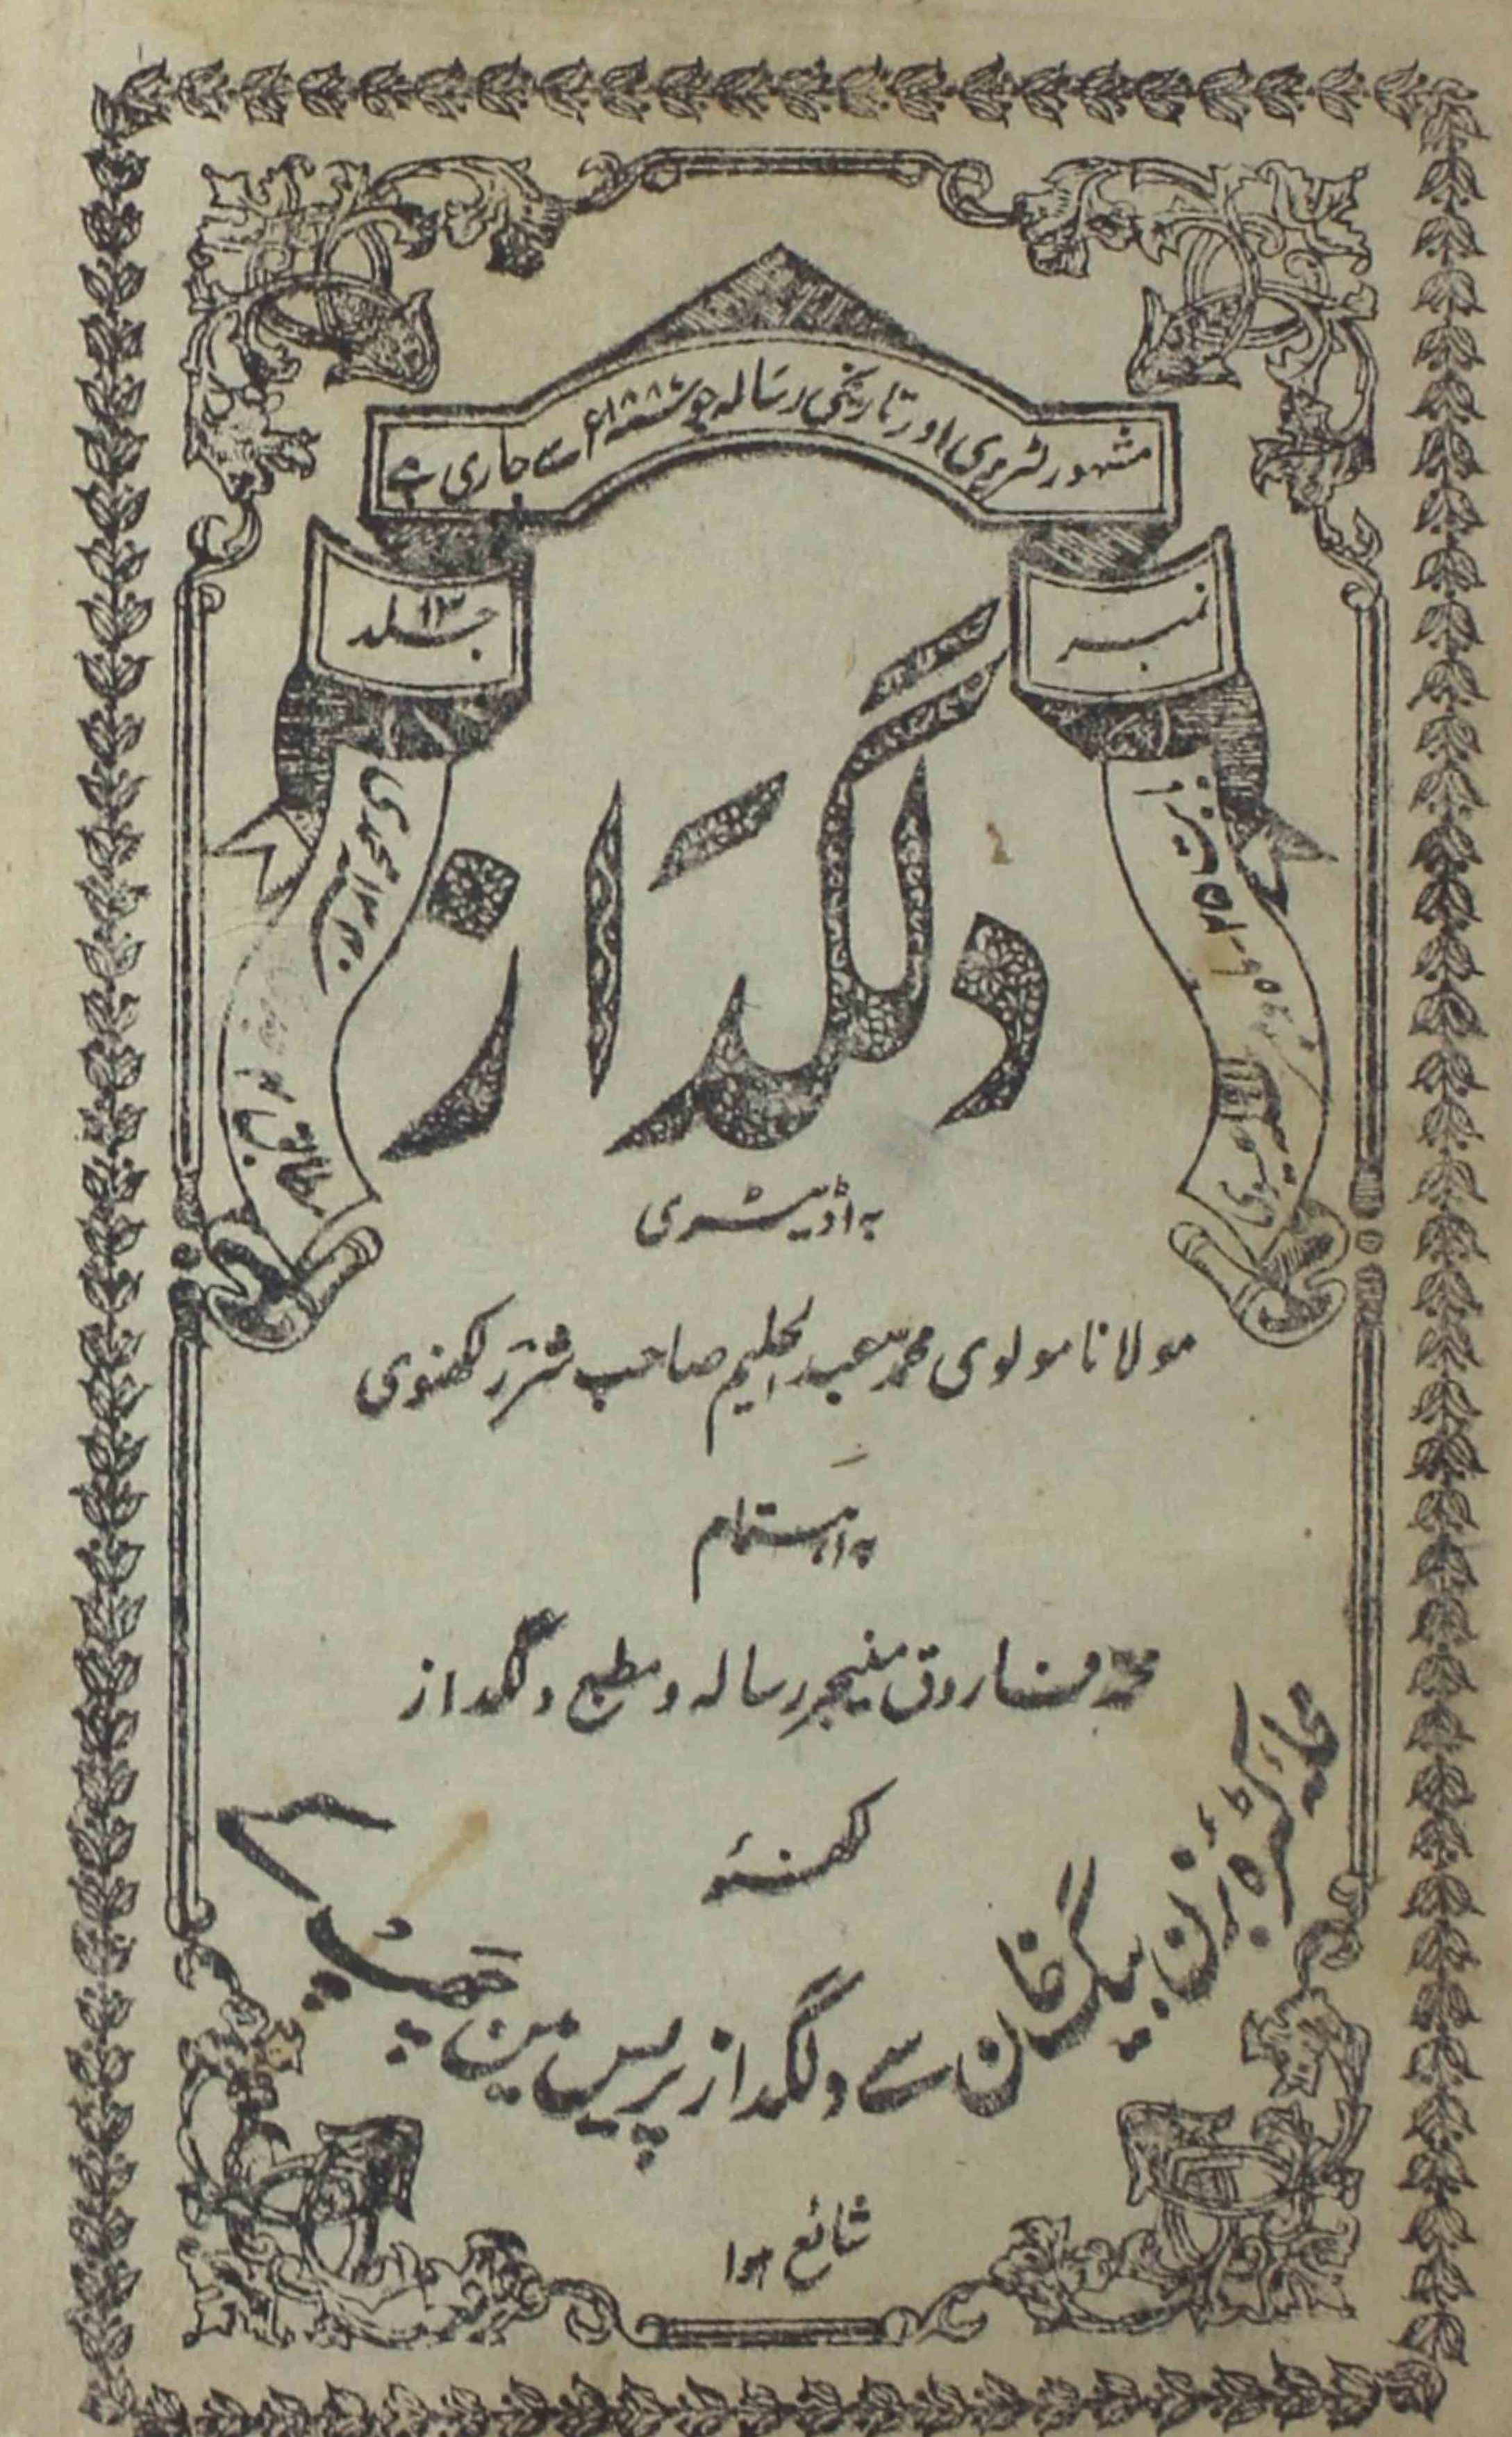 مشہور لٹریری اور تاریخی رسالہ جو ۱۸۸۷ء سے جاری ہے
نمبر
جلد ۱۳
بابت ماہ
عیسوی
مطابق
محمدی
دلگداز
بہ اڈیٹری
مولانا مولوی محمد عبد الحلیم صاحب شرر لکھنوی
بہ اہتمام
محمد فاروق منیجر رسالہ و مطبع دلگداز
لکھنؤ
کٹرہ بزن بیگ خان سے دلگداز پریس مین چھپ کے
شائع ہوا